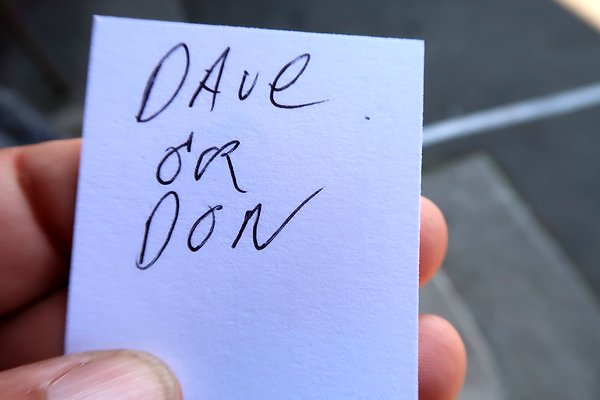 DAve
OR
DON